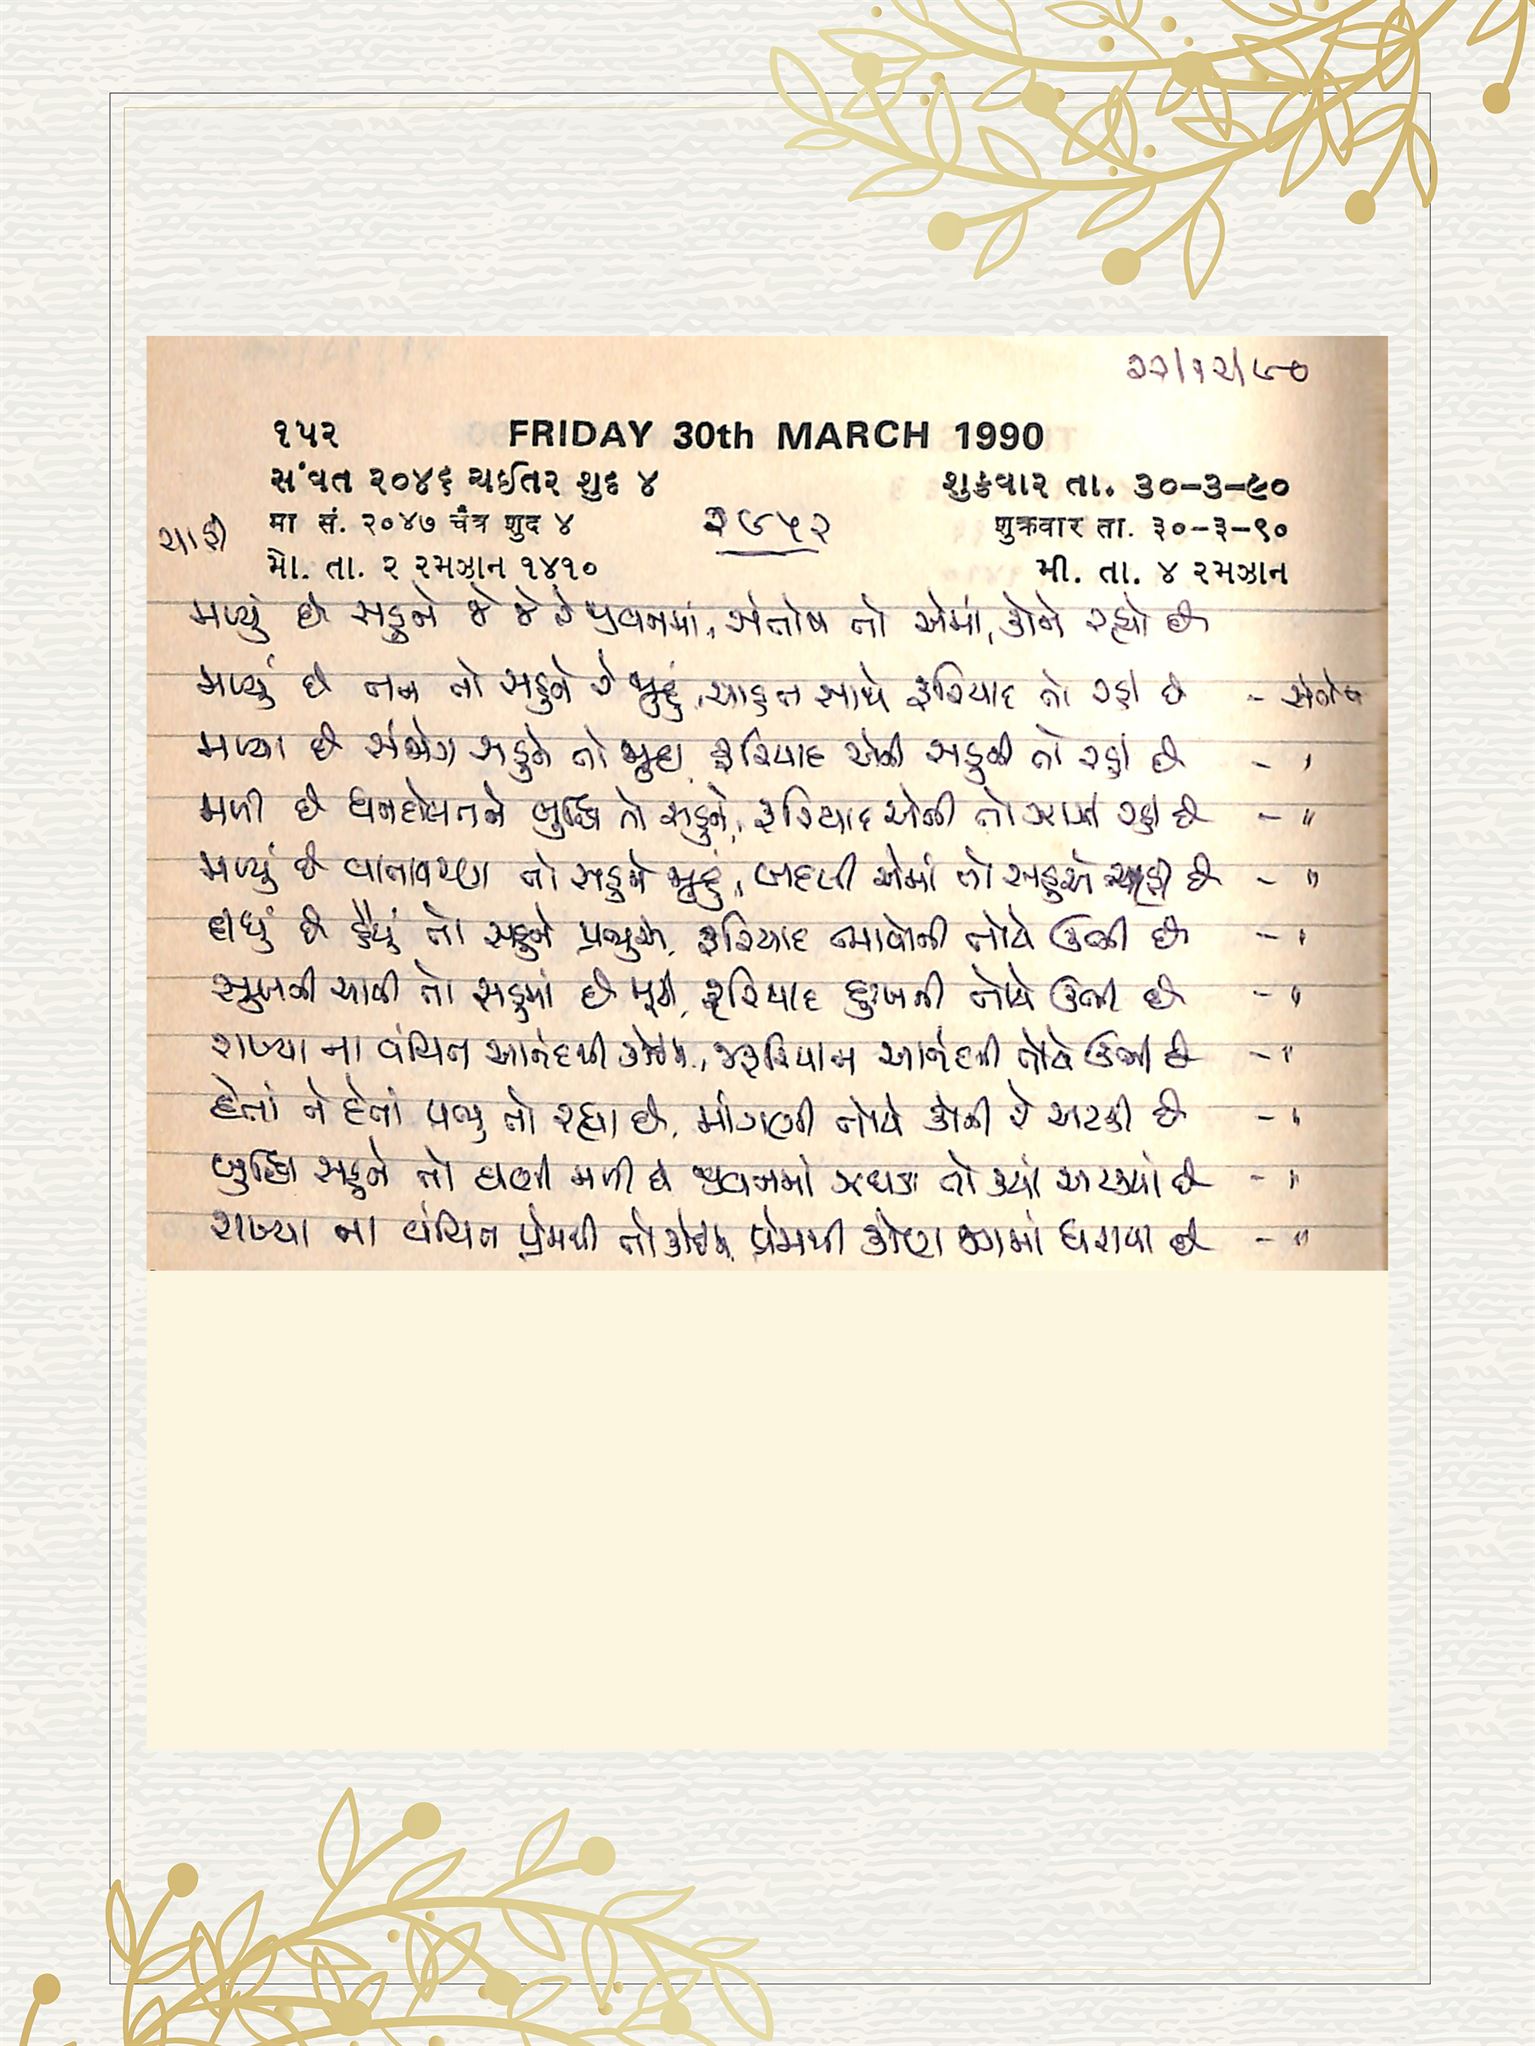 ૨૨/૧૨/૯૦
૧૫૨ FRIDAY 30th MARCH 1990
સંવત ૨૦૪૬ ચઈતર શુદ ૪ શુકરવાર તા. ૩૦-૩-૯૦
मा सं. २०४७ चैत्र शुद ४ शुक्रवार ता. ३०-३-९०
મો. તા. ૨ રમઝાન ૧૪૧૦ મી. તા. ૪ રમઝાન
મળ્યું છે સહુને જે જે રે જીવનમાં, સંતોષ તો એમાં, કોને રહ્યો છે
મળ્યું છે તન તો સહુને રે જુદું, સાથે ફરિયાદ તો રહી છે - સંતોષ
મળ્યા છે સંજોગ સહુને તો જુદા, ફરિયાદ એની સહુની તો રહી છે - "
મળી છે ધનદોલતને બુદ્ધિ તો સહુને, ફરિયાદ એની તો રહી છે - "
મળ્યું છે વાતાવરણ તો સહુને જુદું, બદલી એમાં તો સહુએ ચાહી છે - "
દીધું છે હૈયું તો સહુને પ્રભુએ, ફરિયાદ ભાવોની તોયે ઊભી છે - "
સુખની ચાવી તો સહુમાં છે મૂકી, ફરિયાદ દુઃખની તોયે ઊભી છે - "
રાખ્યા ના વંચિત આનંદથી કોઈને, ફરિયાદ આનંદની તોયે ઊભી છે - "
દેતાં ને દેતાં પ્રભુ તો રહ્યા છે, માંગણી તોયે કોની રે અટકી છે - "
બુદ્ધિ સહુને તો ઘણી મળી છે જીવનમાં ઝઘડા તો ક્યાં અટક્યાં છે - "
રાખ્યા ના વંચિત પ્રેમથી તો કોઈને, પ્રેમથી કોણ જગમાં ધરાયા છે - "